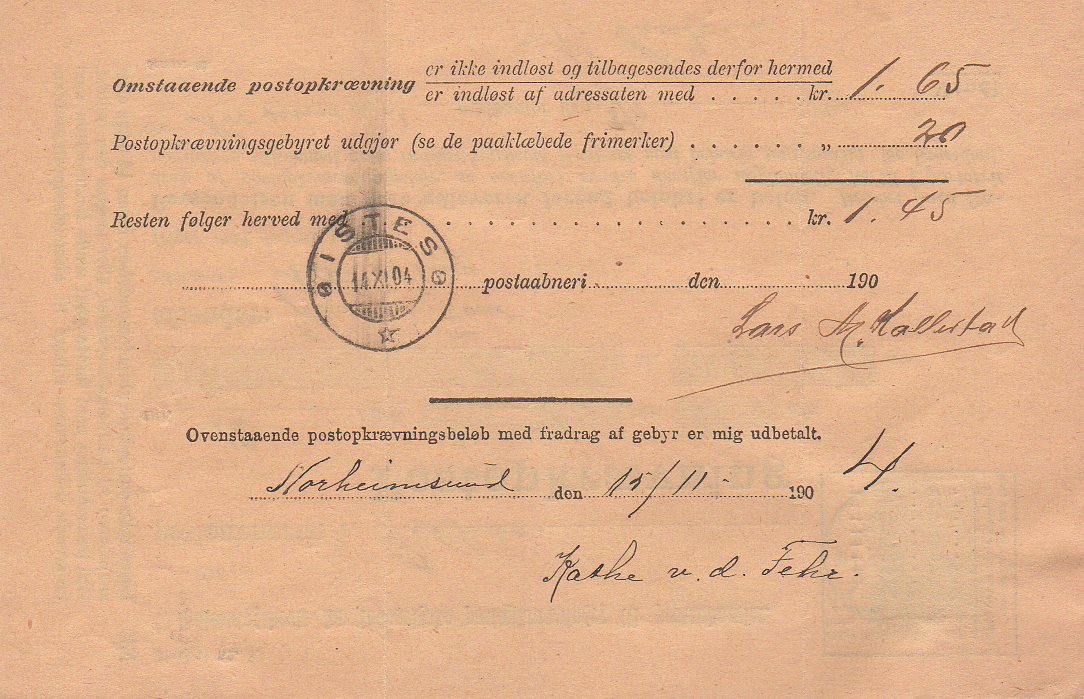 Omstaaende postopkrævning er ikke indløst og tilbagesendes derfor hermed
er indløst af adressaten med . . . . . kr. 1. 65
Postopkrævningsgebyret udgjør (se de paaklæbede frimerker) . . . . . . „ 20
Resten følger herved med . . . . . . . . . . . . . . . . . kr. 1. 45
ØISTESØ
14 XI 04
postaabneri den 190
Lars M. Kallestad
Ovenstaaende postopkrævningsbeløb med fradrag af gebyr er mig udbetalt.
Norheimsund den 15/11 1904.
Kathe v. d. Fehr.